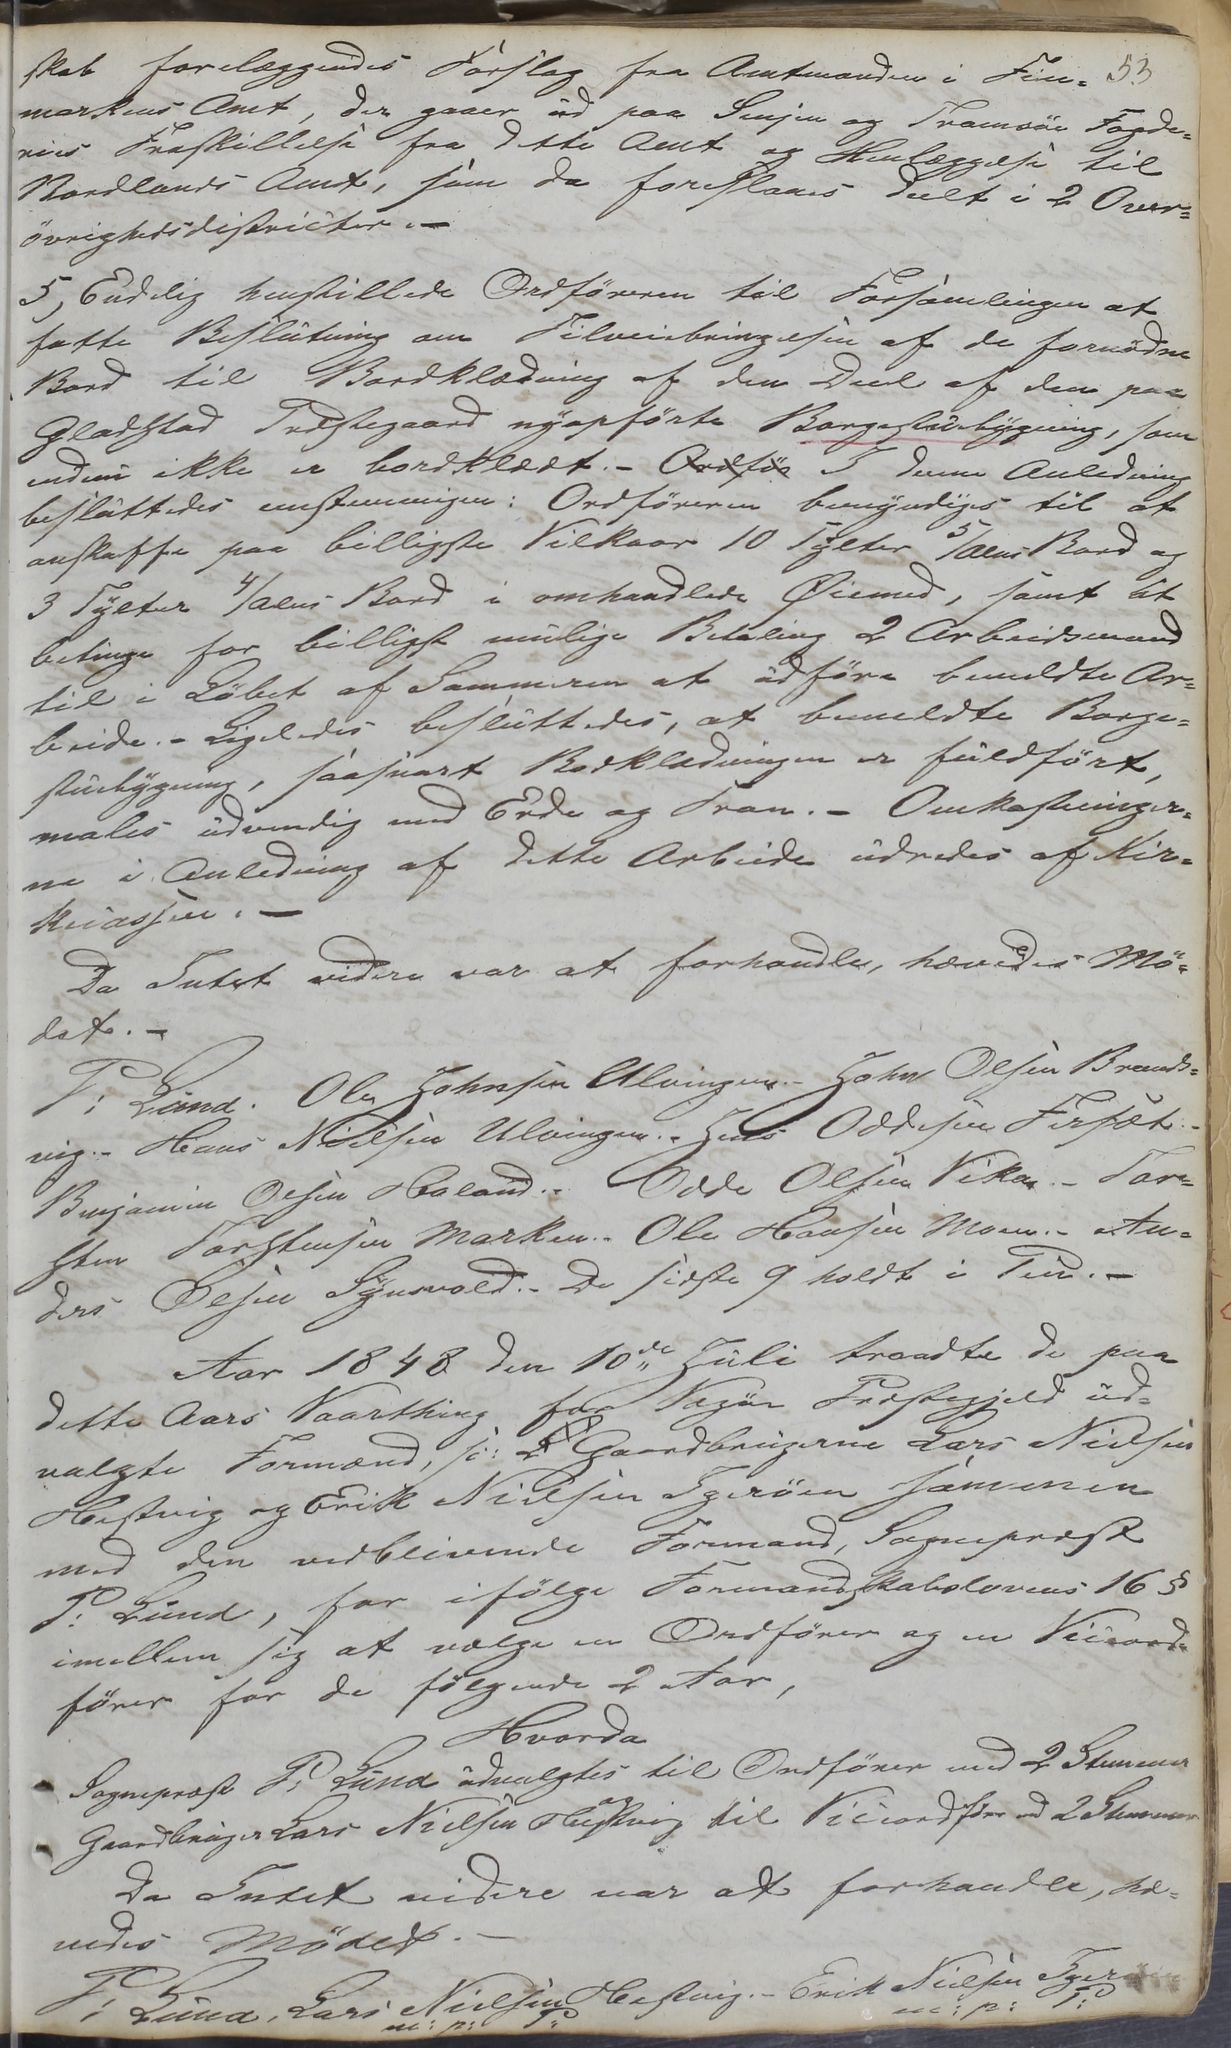 53
skab forelæggendes Forslag fra Amtmanden i Fin-
markens Amt, der gaaer ud paa Senjen og Tromsöe Fogde-
ries Fraskillelse fra dette Amt og Henlæggelse til
Nordlands Amt, som da foreslaaes deelt i 2 Over-
övrighedsdistricter. -
5, Endelig henstillede Ordföreren til Forsamlingen at
fatte Beslutning om Tilveiebringelsen af de fornödne
Bord til Bordklædning af den Deel af den paa
Gladstad Præstegaard nyopförte Borgestuebygning, som
endnu ikke er bordklædt. - Ordför I denne Anledning
besluttedes enstemmigen: Ordföreren bemyndiges til at
anskaffe paa billigste Vilkaar 10 Tylter 5/Alens Bord og
3 Tylter 4/Alens Bord i omhandlede Øiemed, samt at
betinge for billigst mulige Betaling 2 Arbeidsmænd
til i Löbet af Sommeren at udföre bemeldte Ar-
beide. - Ligeledes besluttedes, at bemeldte Borge-
stuebygning, saasnart Bordklædningen er fuldfört,
males udvendig med Erde og Tran. - Omkostninger-
ne i Anledning af dette Arbeide udredes af Kir-
kecassen. -
Da Intet videre var at forhandle, hævedes Mö-
det. -
P: Lund. Ole Johnsen Ulvingen. - John Olsen Brands-
vig. - Hans Nielsen Ulvingen. - Jens Oddesen Fersæt. -
Benjamin Olsen Haland. - Odde Olsen Vika. - Tor-
sten Torstensen Marken. - Ole Hansen Moen. - An-
ders Olsen Synsvold. - De sidste 9 holdt i Pen. -
Aar 1848 den 10de Juli traadte de paa
dette Aars Vaarthing for Vegöe Præstegjeld ud-
valgte Formænd, s: 2 Gaardbrugerne Lars Nielsen
Hestvig og Erik Nielsen Igeröen sammen
med den vedblivende Formand, Sognepræst
P: Lund, for ifölge Formandskabslovens 16 §
imellem sig at vælge en Ordförer og en Viceord-
förer for de fölgende 2 Aar,
Hvorda
Sognepræst P: Lund udvalgtes til Ordförer med 2 Stemmer
Gaardbruger Lars Nielsen Hestvig til Viceordförer med 2 Stemmer
Da Intet videre var at forhandle, hæ-
vedes Mödet. -
P: Lund. Lars Nielsen Hestvig. - Erik Nielsen Igeröen
m: p: P: m: p: P: